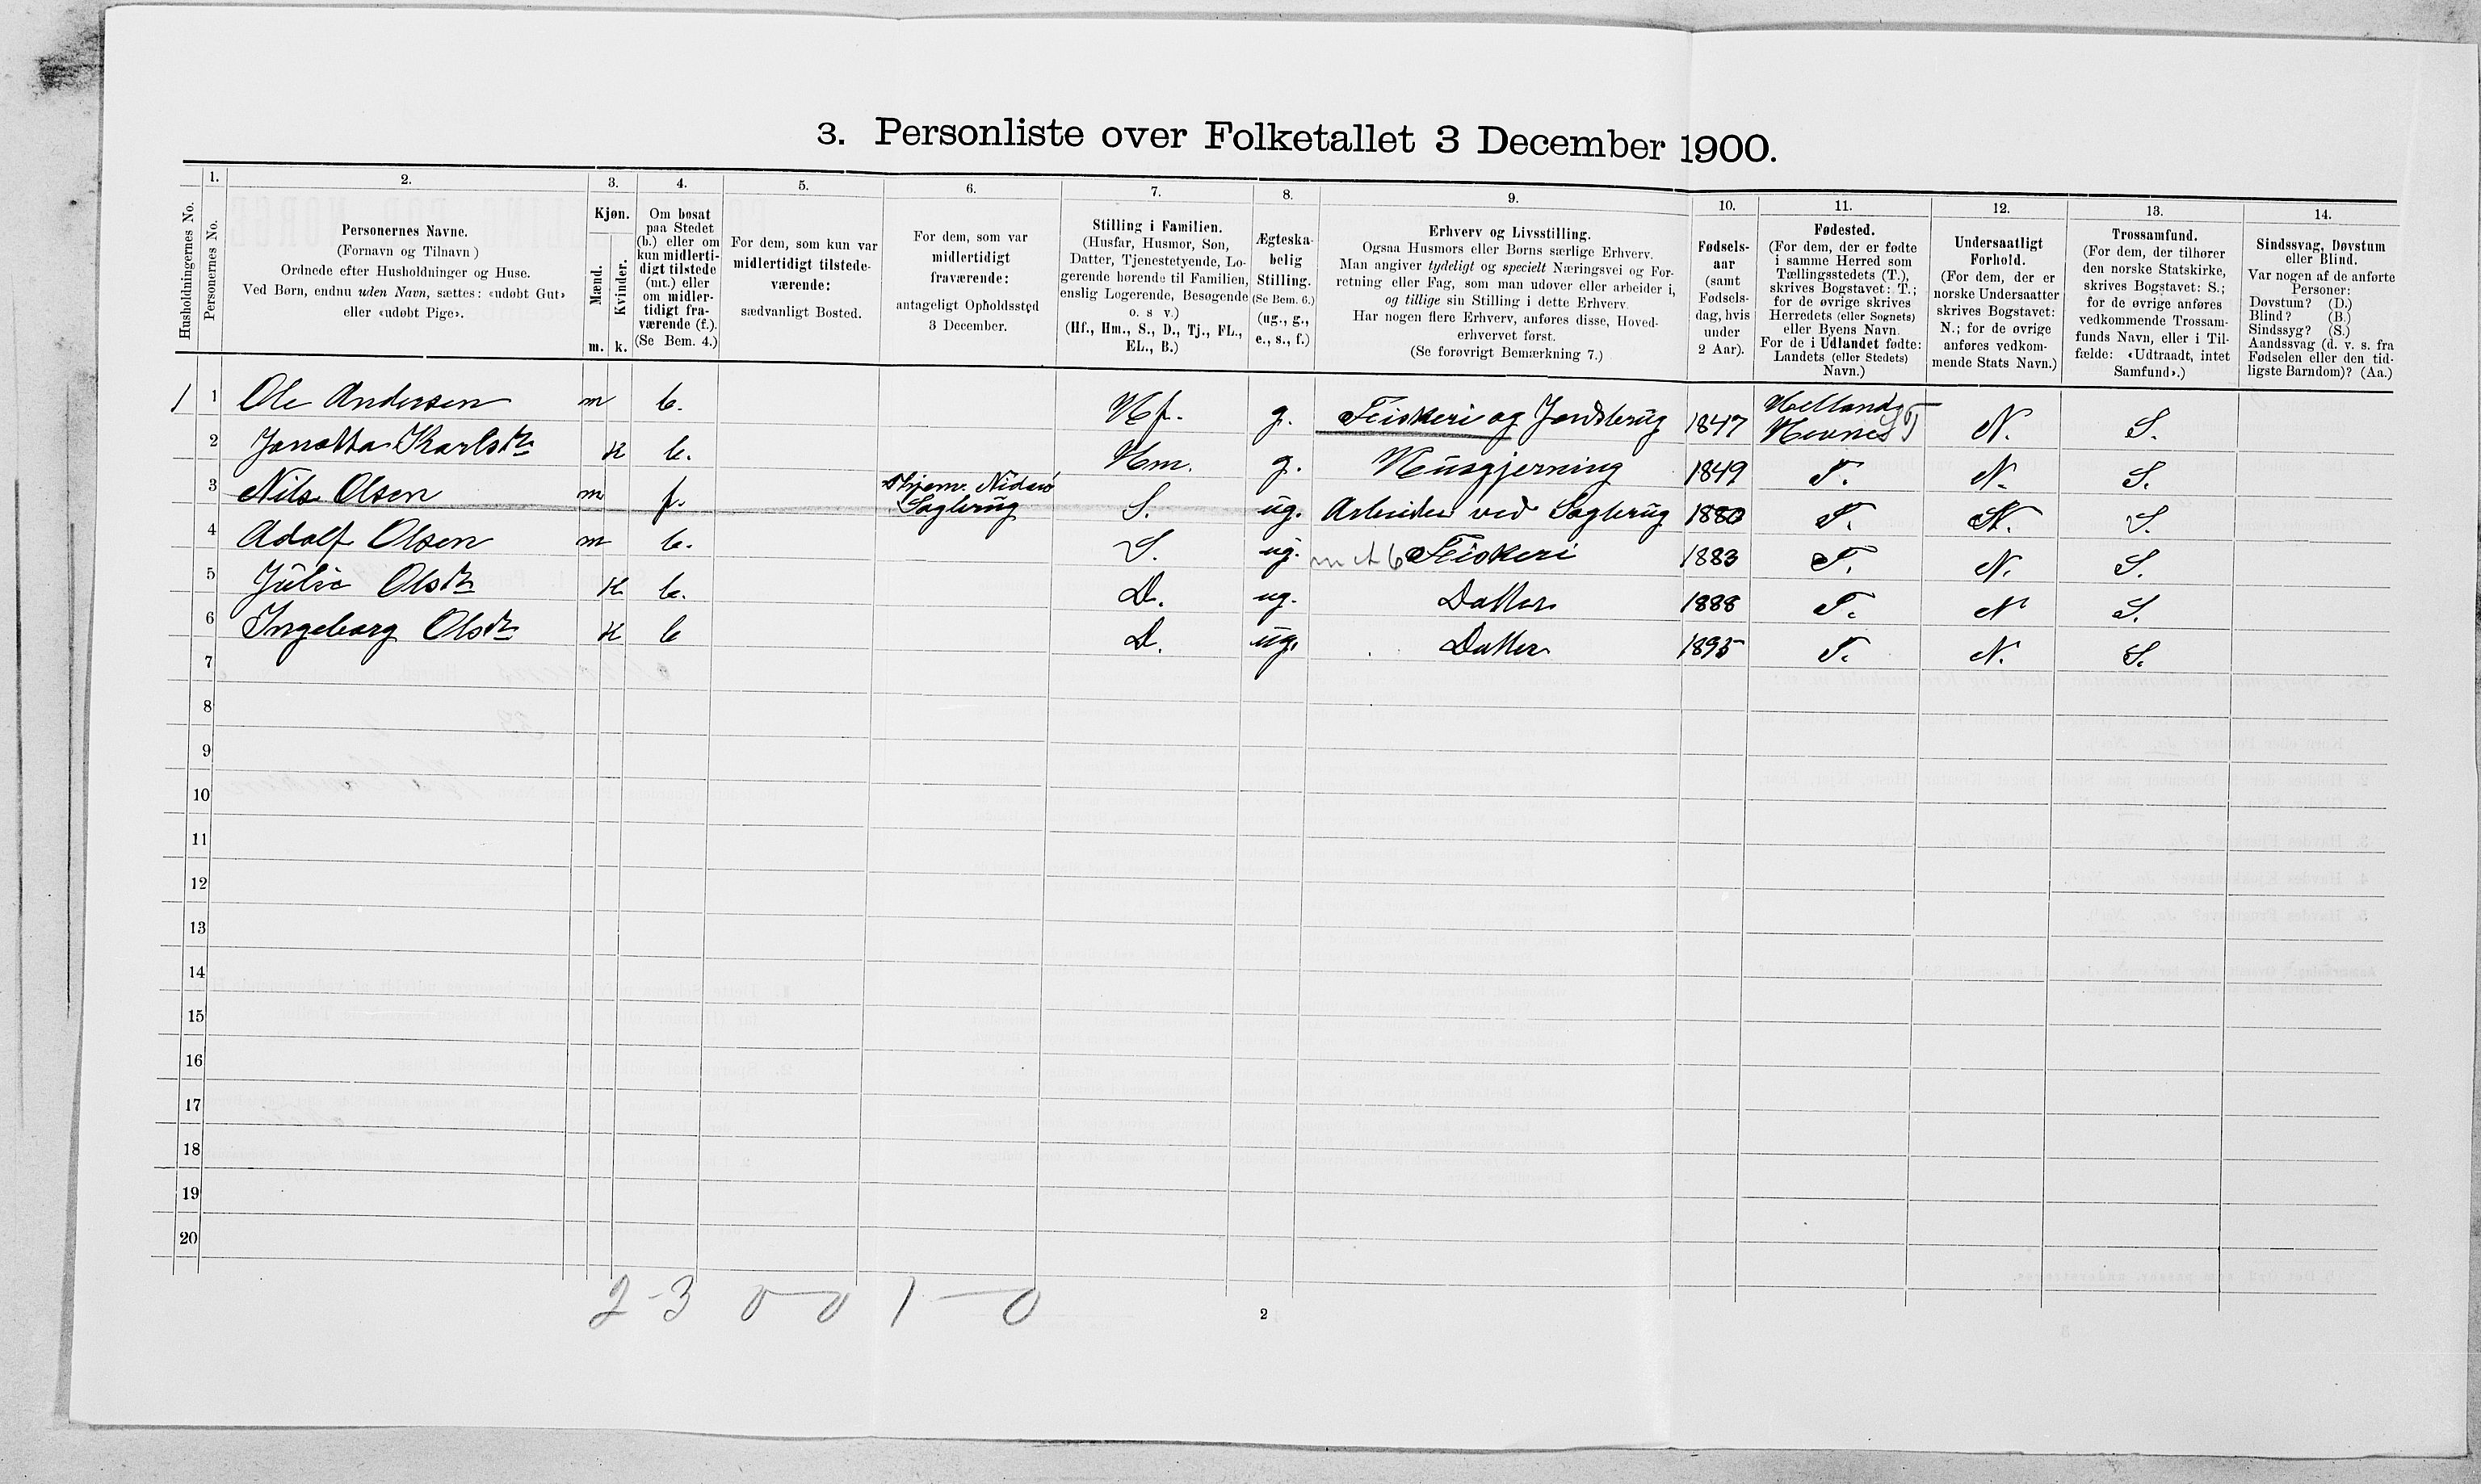 3. Personliste over Folketallet 3 December 1900.
1. 2. 3. 4. 5. 6. 7. 8. 9. 10. 11. 12. 13. 14.
Husholdningernes No.
Personernes No.
Personernes Navne.
(Fornavn og Tilnavn)
Ordnede efter Husholdninger og Huse.
Ved Børn, endnu uden Navn, sættes: «udøbt Gut»
eller «udøbt Pige».
Kjøn.
Mænd.
Kvinder.
m. k.
Om bosat
paa Stedet
(b.) eller om
kun midlerti-
digt tilstede
(mt.) eller
om midler-
tidigt fra-
værende (f.).
(Se Bem. 4.)
For dem, som kun var
midlertidigt tilstede-
værende:
sædvanligt Bosted.
For dem, som var
midlertidigt
fraværende:
antageligt Opholdssted
3 December.
Stilling i Familien.
(Husfar, Husmor, Søn,
Datter, Tjenestetyende, Lo-
gerende hørende til Familien,
enslig Logerende, Besøgende
o. s v.)
(Hf., Hm., S., D., Tj., FL.,
EL., B.)
Ægteska-
belig
Stilling.
(Se Bem. 6.)
(ug., g.,
e., s., f.)
Erhverv og Livsstilling.
Ogsaa Husmors eller Børns særlige Erhverv.
Man angiver tydeligt og specielt Næringsvei og For-
retning eller Fag, som man udøver eller arbeider i,
og tillige sin Stilling i dette Erhverv.
Har nogen flere Erhverv, anføres disse, Hoved-
erhvervet først.
(Se forøvrigt Bemærkning 7.)
Fødsels-
aar
(samt
Fødsels-
dag, hvis
under
2 Aar).
Fødested.
(For dem, der er fødte
i samme Herred som
Tællingsstedets (T.),
skrives Bogstavet: T.;
for de øvrige skrives
Herredets (eller Sognets)
eller Byens Navn.
For de i Udlandet fødte:
Landets (eller Stedets)
Navn.)
Undersaatligt
Forhold.
(For dem, der er
norske Undersaatter
skrives Bogstavet:
N.; for de øvrige
anføres vedkom-
mende Stats Navn.)
Trossamfund.
(For dem, der tilhører
den norske Statskirke,
skrives Bogstavet: S.;
for de øvrige anføres
vedkommende Trossam-
funds Navn, eller i Til-
fælde: «Udtraadt, intet
Samfund».)
Sindssvag, Døvstum
eller Blind.
Var nogen af de anførte
Personer:
Døvstum? (D.)
Blind? (B.)
Sindssyg? (S.)
Aandssvag (d. v. s. fra
Fødselen eller den tid-
ligste Barndom)? (Aa.)
1 1 Ole Andersen m b. Hf. g. Fiskeri og Jordbrug 1847 N. S.
2 Jonetta Karlsdtr k b. Hm. g. Husgjerning 1849 T. N. S.
3 Nils Olsen m f. Sagbrug S. ug. Arbeider ved Sagbrug 1880 T. N. S.
4 Adolf Olsen m b. S. ug. Fiskeri 1883 T. N. S.
5 Julie Olsdtr k b. D. ug. Datter 1888 T. N S.
6 Ingeborg Olsdtr k b D. ug. Datter 1895 T. N. S.
7
8
9
10
11
12
13
14
15
16
17
18
19
20
2-3 0-0 1-0
2